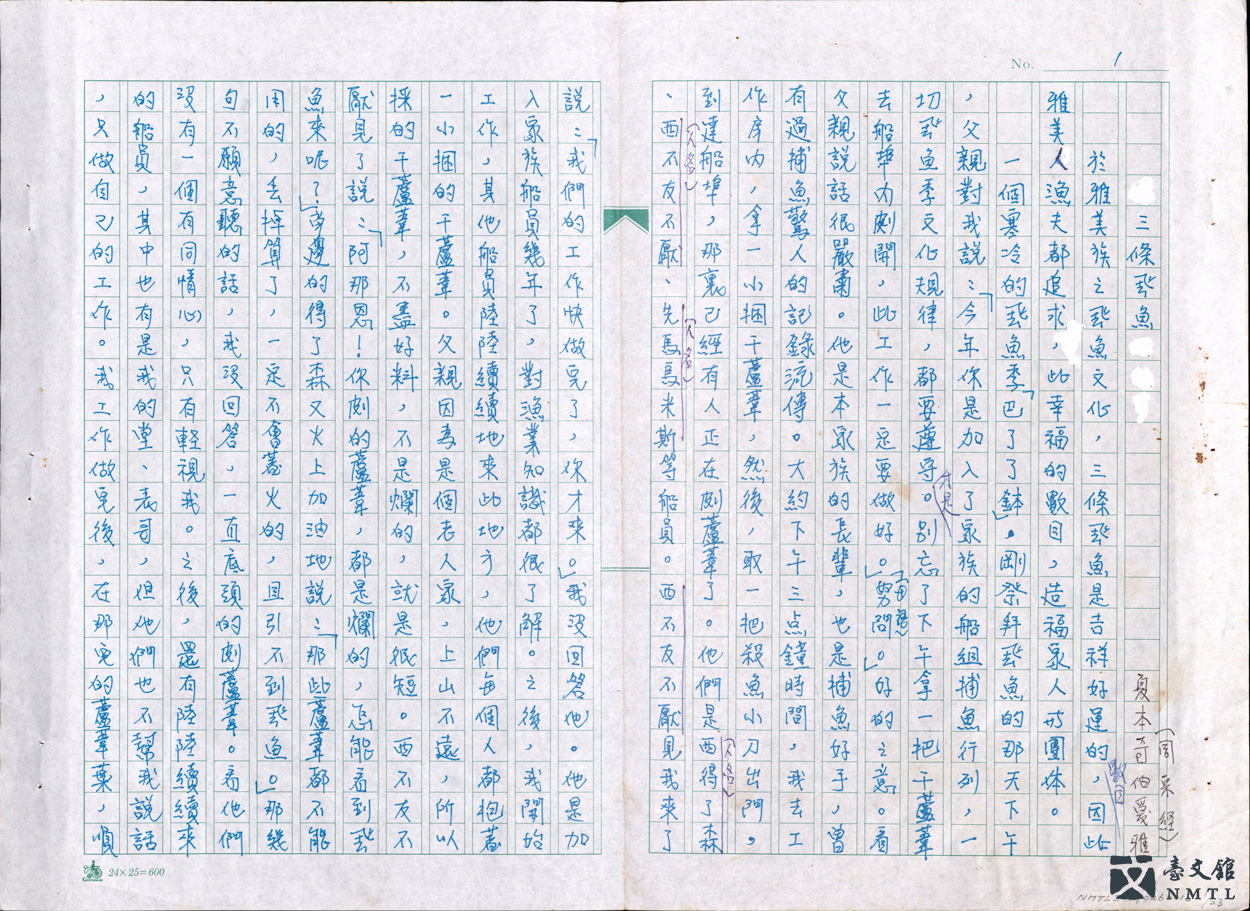 No. 1
三條飛魚
夏本奇伯愛雅
(周宗經)
於雅美族之飛魚文化,三條飛魚是吉祥好運的,因此
數目
雅美人漁夫都追求,此幸福的數目,造福家人或團体。
一個寒冷的飛魚季「巴了了缽」。剛祭拜飛魚的那天下午
,父親對我說:「今年你是加入了家族的船組捕魚行列,一
才是
切飛魚季文化規律,都要遵守。別忘了下午拿一把干蘆葦
去船埠內劇開,此工作一定要做好。」「努問。」好的之意。看
母語
父親說話很嚴肅。他是本家族的長輩,也是捕魚好手,曾
有過捕魚驚人的記錄流傳。大約下午三点鐘時間,我去工
作房內,拿一小捆干蘆葦,然後,取一把殺魚小刀出門。
到達船埠,那裏已經有人正在劇蘆葦了。他們是西得了森
(人名)
、西不友不厭、先馬馬米斯等船員。西不友不厭見我來了
(人名)
(人名)
說:「我們的工作快做完了,你才來。」我沒回答他。他是加
入家族船員幾年了,對漁業知識都很了解。之後,我開始
工作,其他船員陸陸續續地來此地方,他們每個人都抱著
一小捆的干蘆葦。父親因為是個老人家,上山不遠,所以
採的干蘆葦,不盡好料,不是爛的,就是很短。西不友不
厭見了說:「阿那恩!你劇的蘆葦,都是爛的,怎能看到飛
魚來呢?」旁邊的得了森又火上加油地說:「那些蘆葦都不能
用的,丟掉算了,一定不會著火的,且引不到飛魚。」那幾
句不願意聽的話,我沒回答,一直底頭的劇蘆葦。看他們
沒有一個有同情心,只有輕視我。之後,還有陸陸續續來
的船員,其中也有是我的堂、表哥,但他們也不幫我說話
,只做自己的工作。我工作做完後,在那兒的蘆葦葉,順
24×25=600
臺文館
NMTL